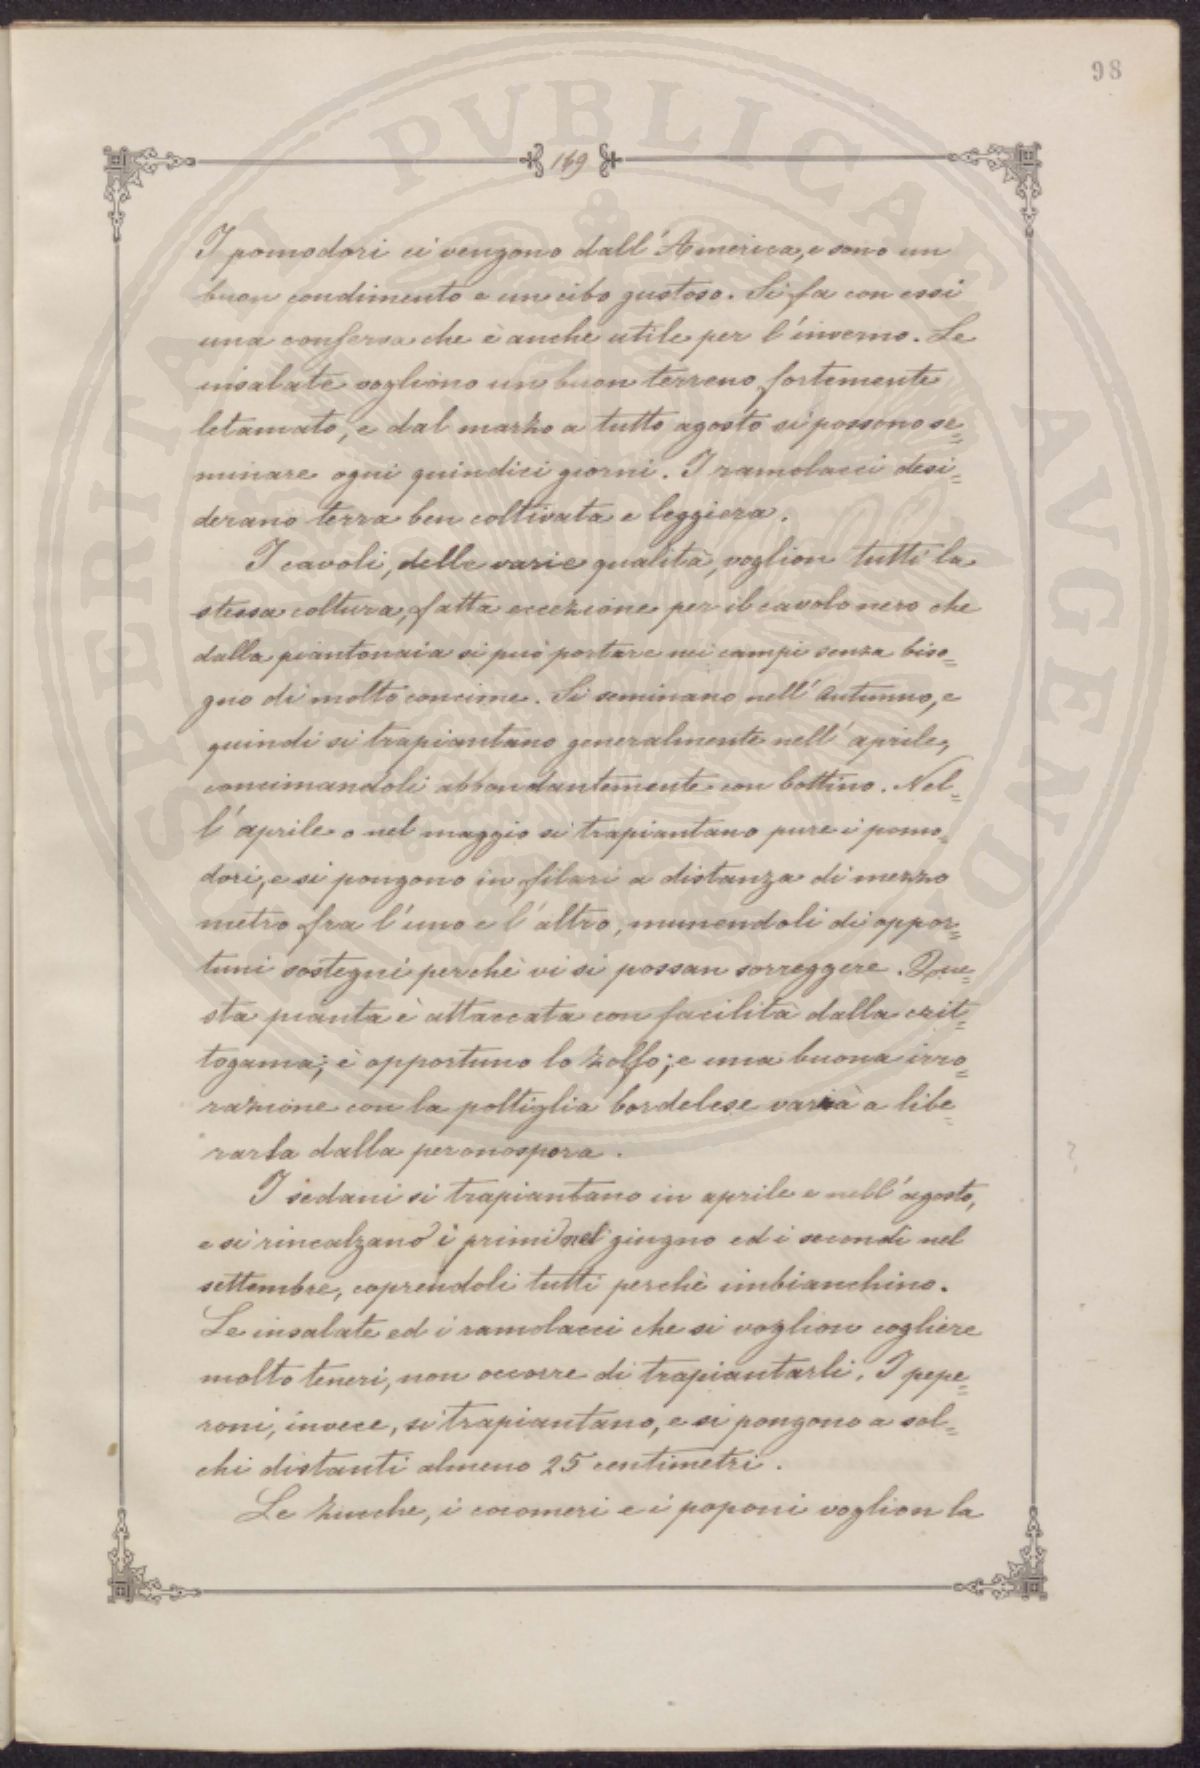 98
169
I pomodori ci vengono dall'America, e sono un
buon condimento e un cibo gustoso. Si fa con essi
una conserva che è anche utile per l'inverno. Le
insalate vogliono un buon terreno fortemente
letamato, e dal marzo a tutto agosto si possono se=
minare ogni quindici giorni. I ramolacci desi=
derano terra ben coltivata e leggiera.
I cavoli, delle varie qualità, voglion tutti la
stessa coltura, fatta eccezione per il cavolo nero che
dalla piantonaia si può portare nei campi senza biso=
gno di molto concime. Si seminano nell'autunno, e
quindi si trapiantano generalmente nell'aprile,
concimandoli abbondantemente con bottino. Nel=
l'aprile o nel maggio si trapiantano pure i pomo=
dori, e si pongono in filari a distanza di mezzo
metro fra l'uno e l'altro, munendoli di oppor=
tuni sostegni perchè vi si possan sorreggere. Que=
sta pianta è attaccata con facilità dalla crit=
togama; è opportuno lo zolfo; e una buona irro=
razione con la poltiglia bordelese varrà a libe=
rarla dalla peronospora.
I sedani si trapiantano in aprile e nell'agosto,
e si rincalzano i primi nel giugno ed i secondi nel
settembre, coprendoli tutti perchè imbianchino.
Le insalate ed i ramolacci che si voglion cogliere
molto teneri, non occorre di trapiantarli. I pepe=
roni, invece, si trapiantano, e si pongono a sol=
chi distanti almeno 25 centimetri.
Le zucche, i cocomeri e i poponi voglion la
?
SPERITATI PVBLICAE AVGENDAE